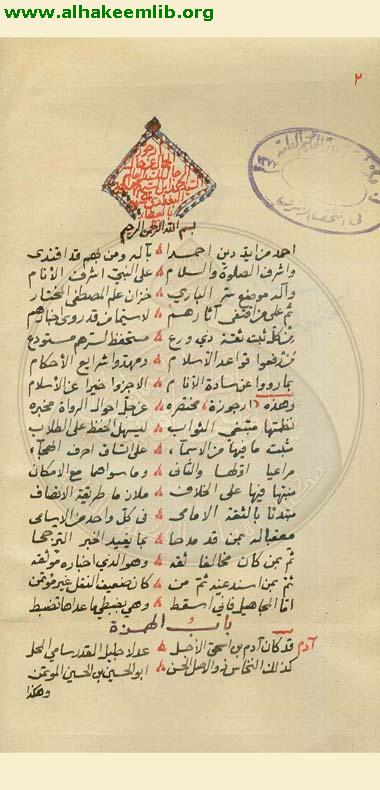 www.alhakeemlib.org
٢
بسم الله الرحمن الرحيم
احمد من ايد دين احمدا بآله ومن بهم قد اقتدى
واشرف الصلوة والسلام على النبي اشرف الانام
وآله موضع سر الباري خزان علم المصطفى المختار
ثم على من اقتفى آثارهم لاسيما من قدروى اخبارهم
من كل ثبت ثقة ذي ورع مستحفظ لسرهم مستودع
قد رفعوا قواعد الاسلام ومهدوا شرايع الاحكام
بما رووا عن سادة الانام الا جزوا خيرا عن الاسلام
وهذه ارجوزة مختصره عن جل احوال الرواة مخبره
نظمتها مبتغي الثواب ليسهل الحفظ على الطلاب
مثبت ما فيها من الاسماء على اتساق احرف الهجاء
مراعيا اولها والثاني وما سواهما مع الامكان
منبها فيها على الخلاف ملازما طريقة الانصاف
مبتدئا بالثقة الامامي في كل واحد من الاسامي
معقباله بمن قد مدحا بما يفيد الخبر الترجحا
ثم بمن كان مخالفا ثقه وهو الذي اخباره موثقه
ثم بمن اسند عنه ثم من كان ضعيف النقل غير مؤتمن
اما المجاهيل فاني اسقط وهي بضبطي ما عداها تضبط
باب الهمزة
آدم قد كان آدم بن اسحق الاجل عدلا جليل القدر سامي المحل
كذلك النخاس ذو الاصل الحسن ابو الحسين بن الحسين المؤتمن
وهكذا